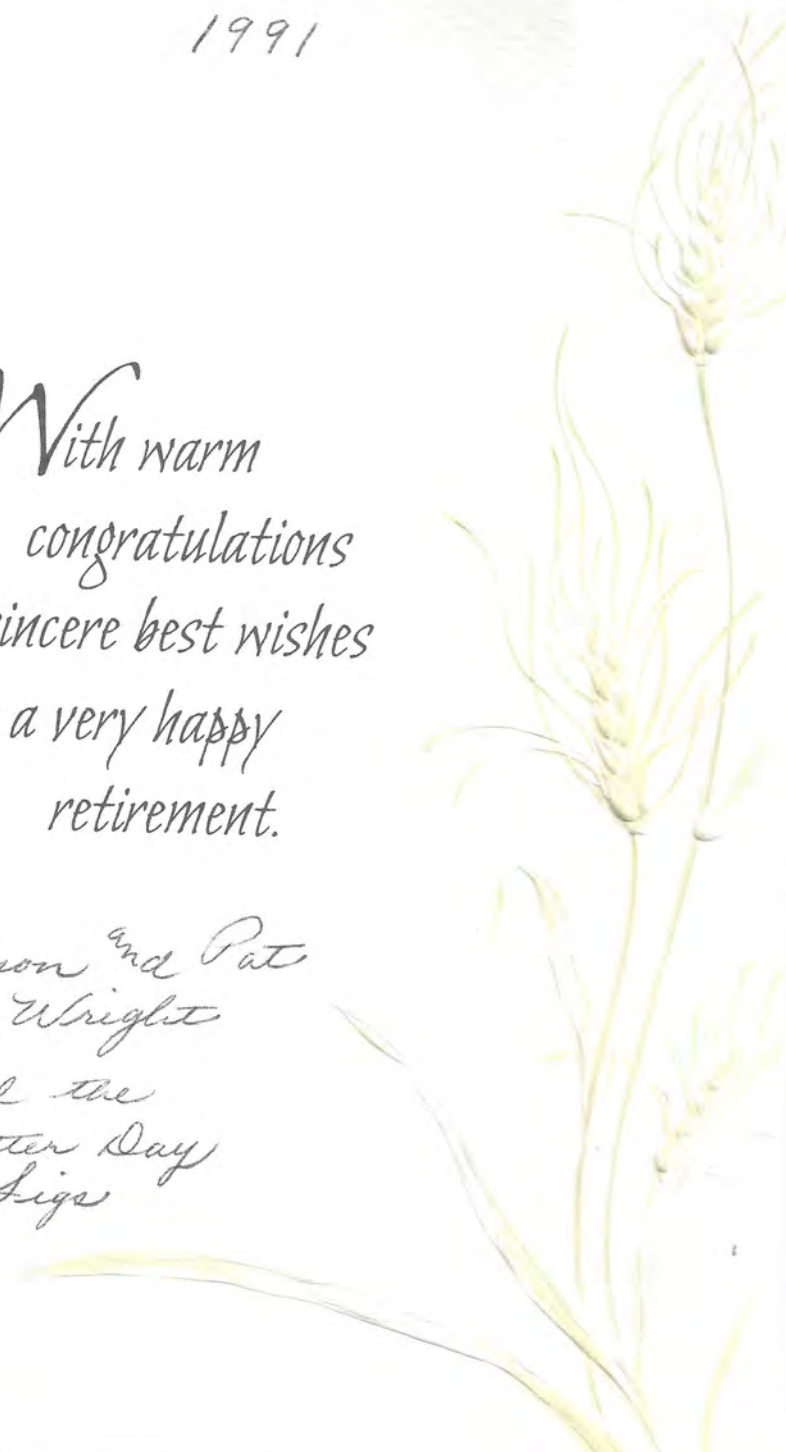 1991
With warm
congratulations
sincere best wishes
a very happy
retirement.
and Pat
Wright
the
Day
Sigs